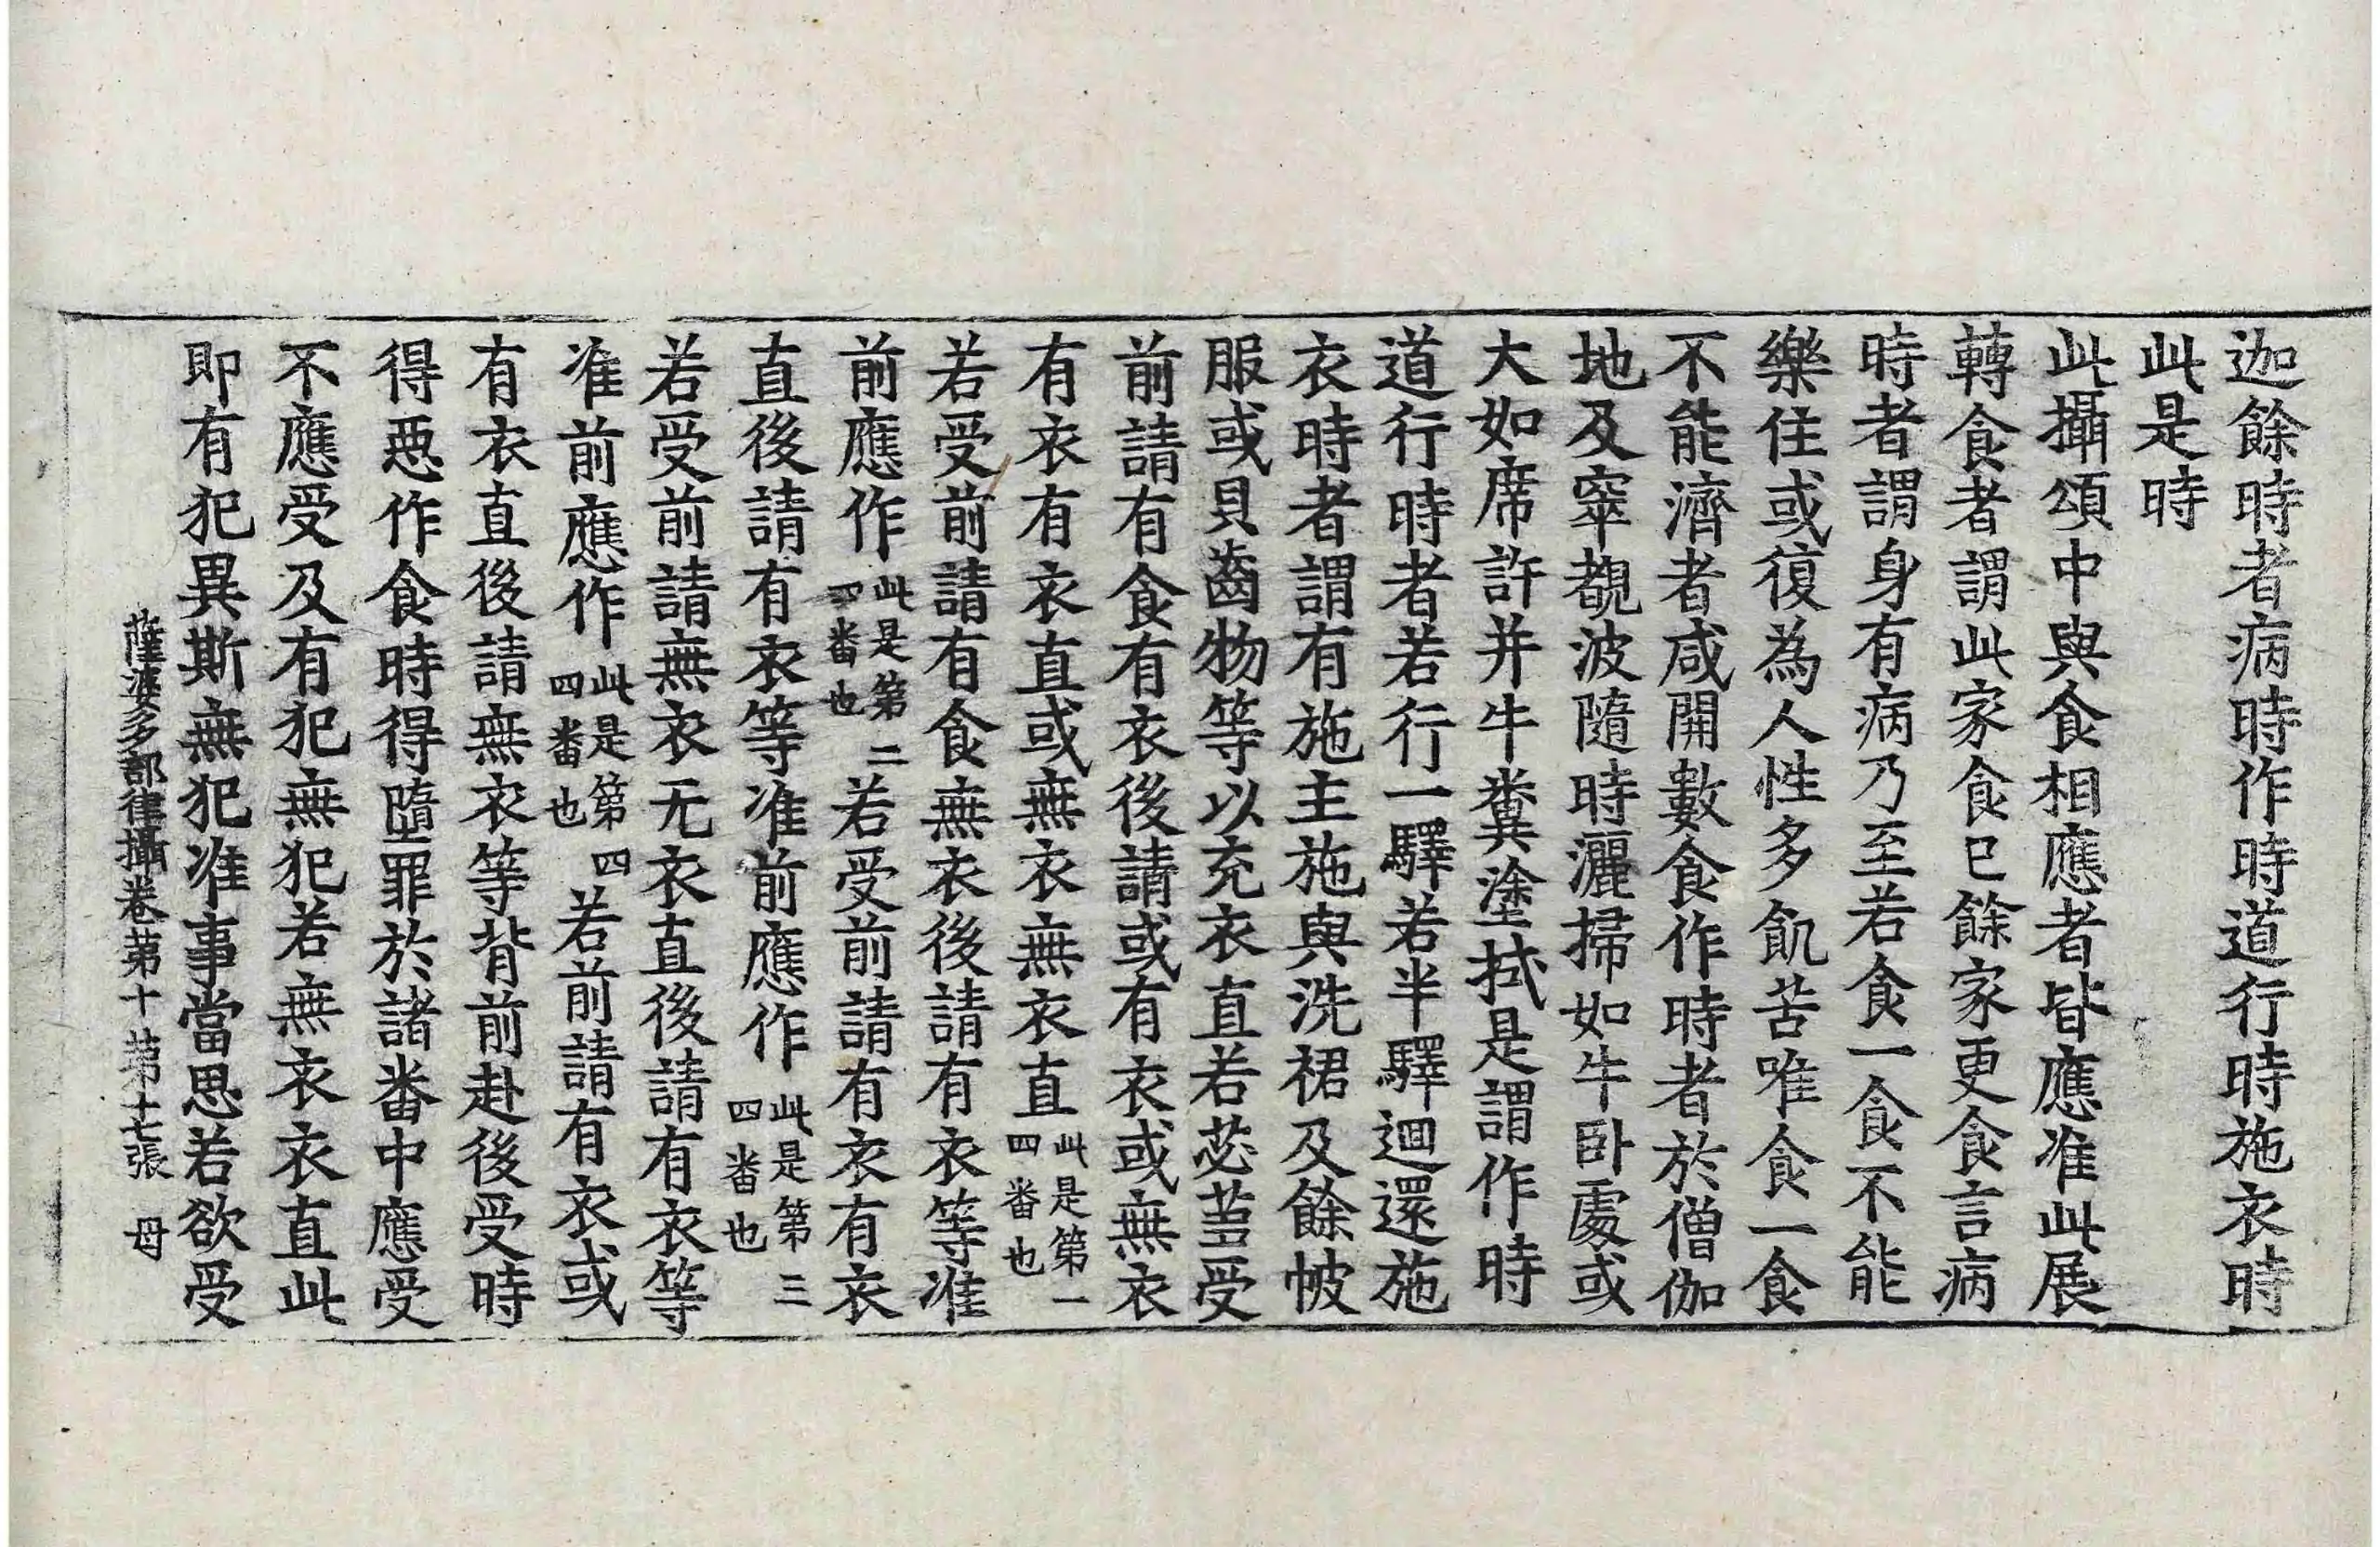 迦餘時者病時作時道行時施衣時
此是時
此攝頌中與食相應者皆應准此展
轉食者謂此家食已餘家更食言病
時者謂身有病乃至若食一食不能
樂住或復為人性多飢苦唯食一食
不能濟者咸開數食作時者於僧伽
地及窣覩波隨時灑掃如牛卧處或
大如席許并牛糞塗拭是謂作時
道行時者若行一驛若半驛迴還施
衣時者謂有施主施與洗裙及餘帔
服或貝齒物等以充衣直若苾蒭受
前請有食有衣後請或有衣或無衣
有衣有衣直或無衣無衣直此是第一四番也
若受前請有食無衣後請有衣等准
前應作此是第二四番也若受前請有衣有衣
直後請有衣等准前應作此是第三四番也
若受前請無衣无衣直後請有衣等
准前應作此是第四四番也若前請有衣或
有衣直後請無衣等背前赴後受時
得惡作食時得墮罪於諸番中應受
不應受及有犯無犯若無衣衣直此
即有犯異斯無犯准事當思若欲受
薩婆多部律攝卷第十 第十七張 母